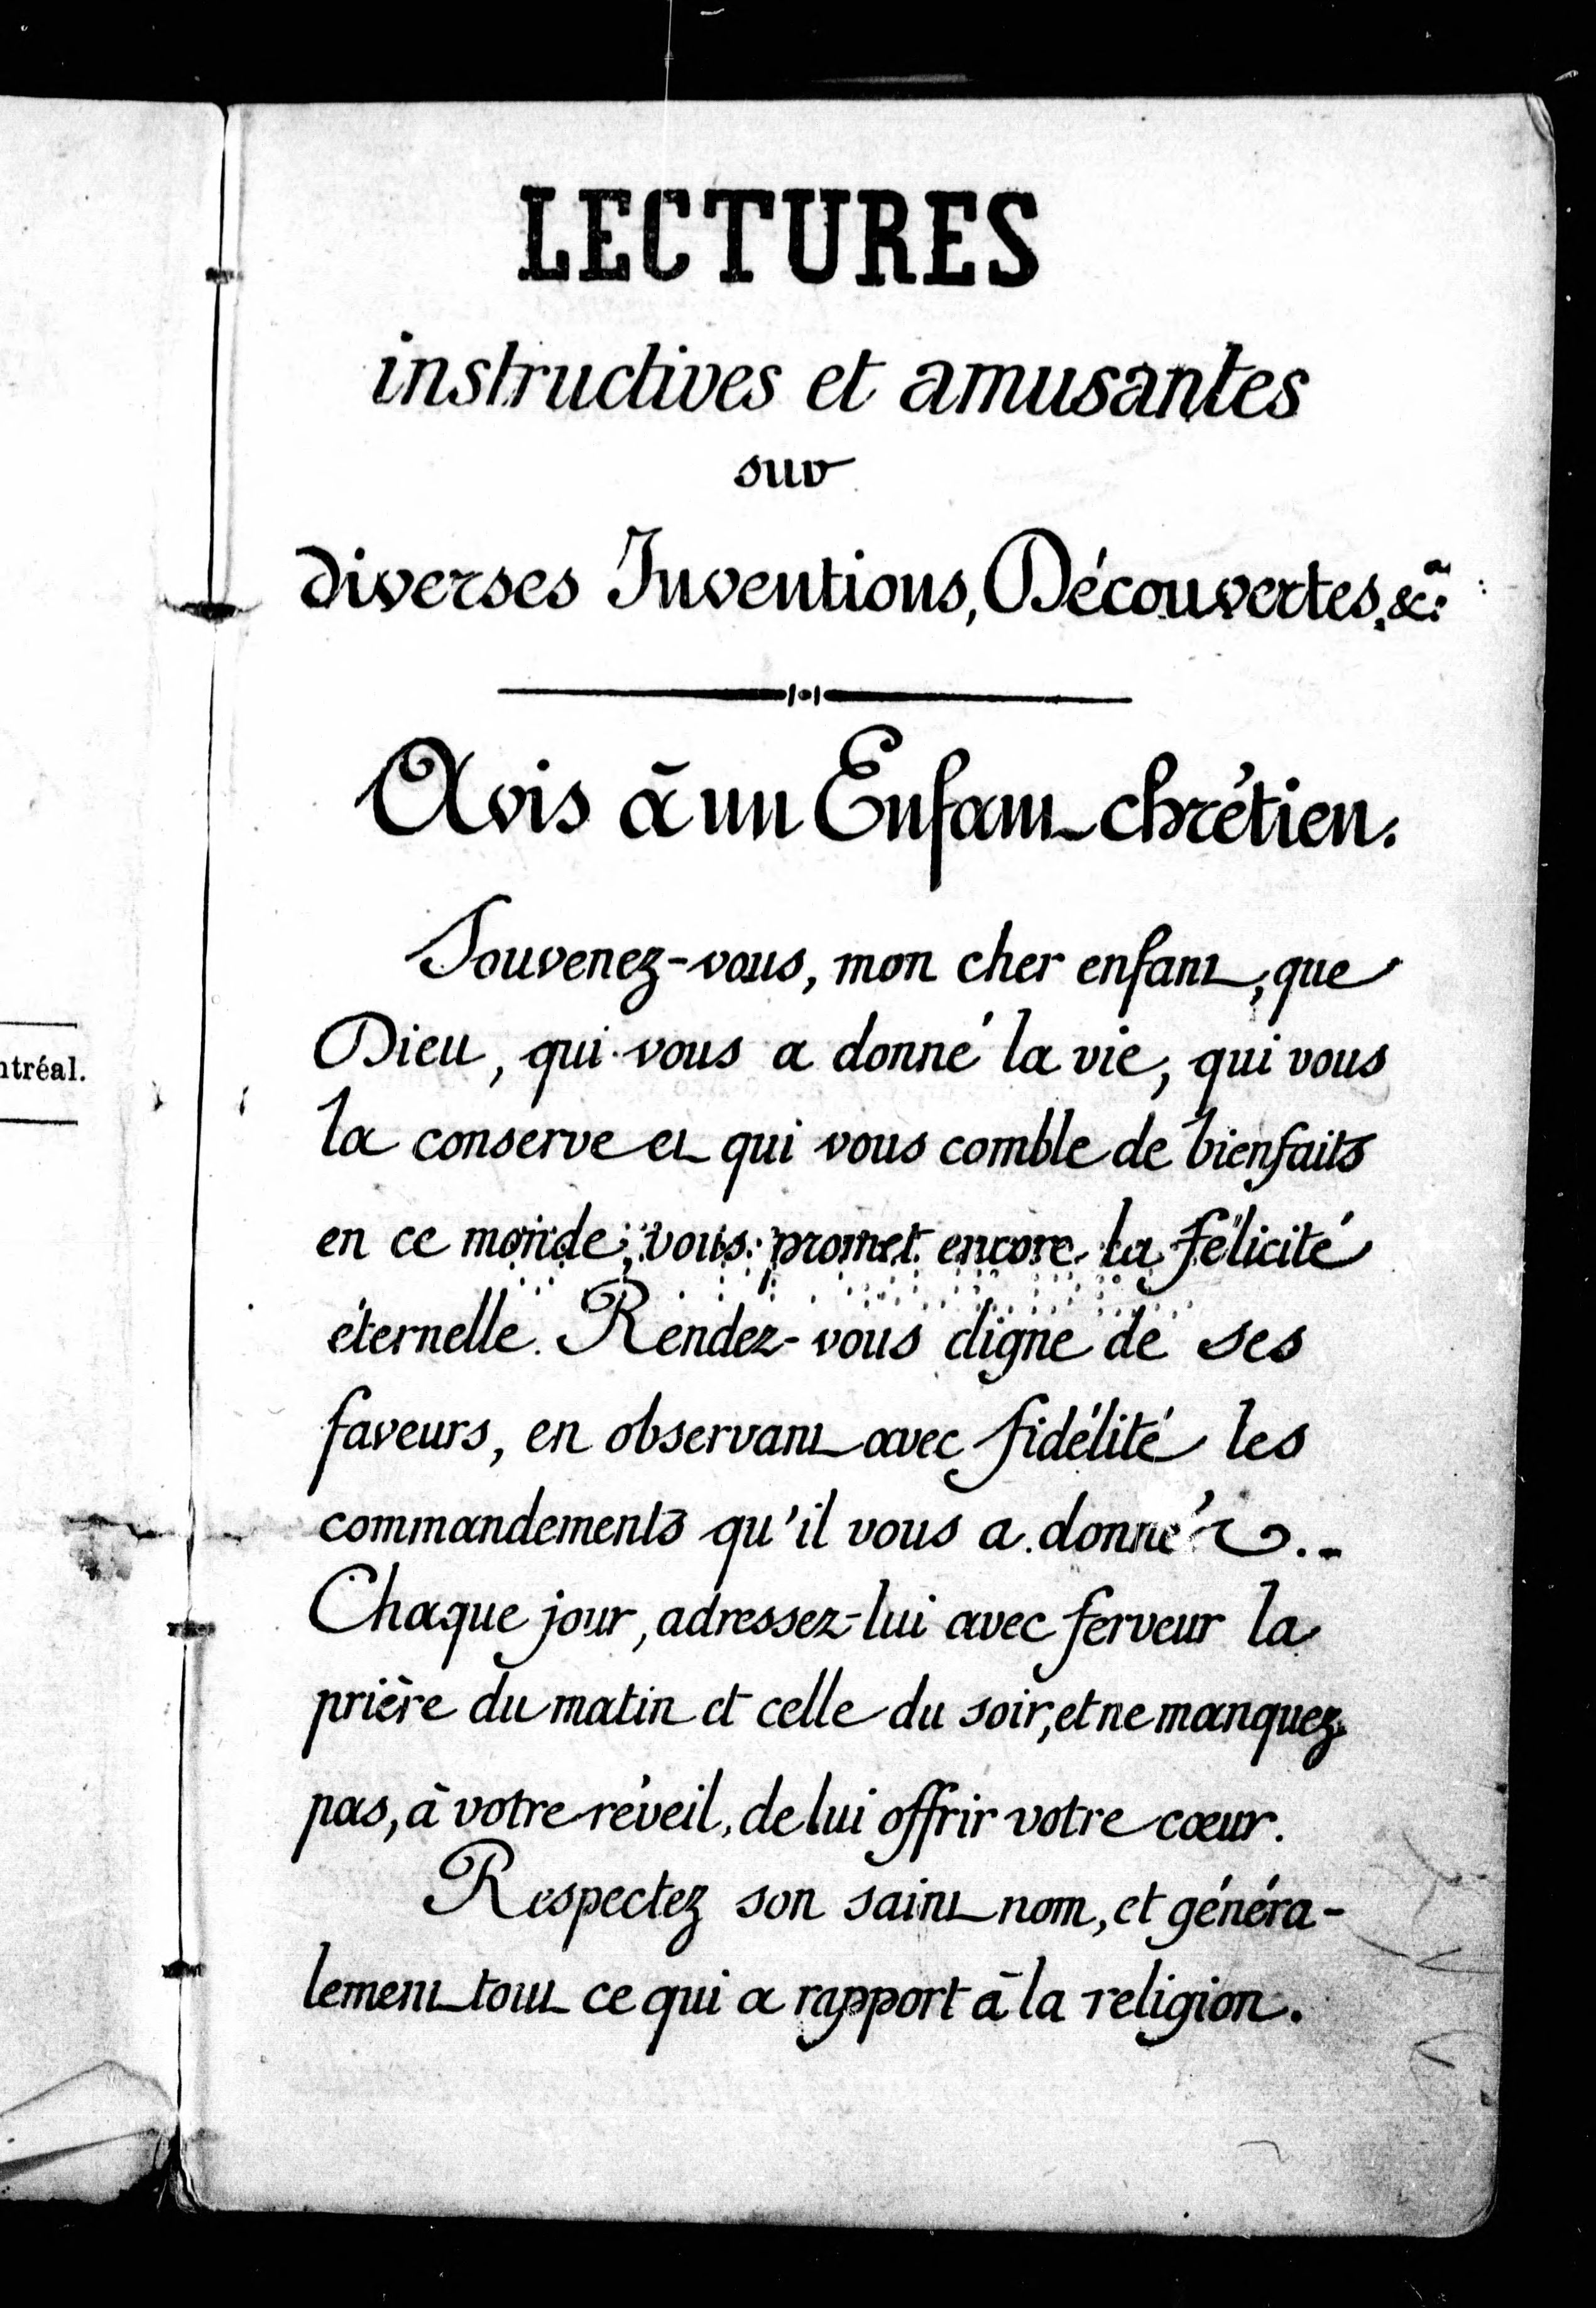 LECTURES
instructives et amusantes
sur
diverses Inventions, Découvertes, &a.
Avis à un Enfant chrétien.
Souvenez-vous, mon cher enfant, que
Dieu, qui vous a donné la vie, qui vous
la conserve et qui vous comble de bienfaits
en ce monde, vous promet encore la félicité
éternelle. Rendez-vous digne de ses
faveurs, en observant avec fidélité les
commandements qu'il vous a donnés.-
Chaque jour, adressez-lui avec ferveur la
prière du matin et celle du soir, et ne manquez
pas, à votre réveil, de lui offrir votre cœur.
Respectez son saint nom, et généra-
lement tout ce qui a rapport à la religion.
ntréal.